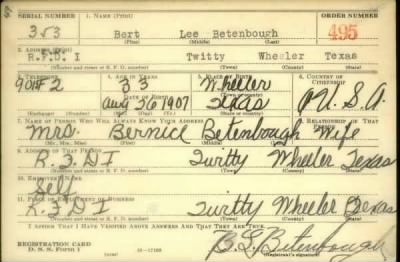 SERIAL NUMBER 1. NAME (Print) ORDER NUMBER
353 Bert Lee Betenbough 495
(First) (Middle) (Last)
2. ADDRESS (Print)
R.F.D. I Twitty Wheeler Texas
(Number and street or R. F. D. number) (Town) (County) (State)
3. TELEPHONE 4. AGE IN YEARS 5. PLACE OF BIRTH 6. COUNTRY OF CITIZENSHIP
901F2 33 Wheeler
DATE OF BIRTH
Aug 26 1907 Texas U.S.A.
(Exchange) (Number) (Mo.) (Day) (Yr.) (State or country)
7. NAME OF PERSON WHO WILL ALWAYS KNOW YOUR ADDRESS 8. RELATIONSHIP OF THAT PERSON
Mrs. Bernice Betenbough Wife
(Mr., Mrs., Miss) (First) (Middle) (Last)
9. ADDRESS OF THAT PERSON
R.F.D I Twitty Wheeler Texas
(Number and street or R. F. D. number) (Town) (County) (State)
10. EMPLOYER'S NAME
Self
11. PLACE OF EMPLOYMENT OR BUSINESS
R.F.D I Twitty Wheeler Texas
(Number and street or R. F. D. number) (Town) (County) (State)
I AFFIRM THAT I HAVE VERIFIED ABOVE ANSWERS AND THAT THEY ARE TRUE.
REGISTRATION CARD
D. S. S. Form 1 B L Betenbough
(Registrant's signature)